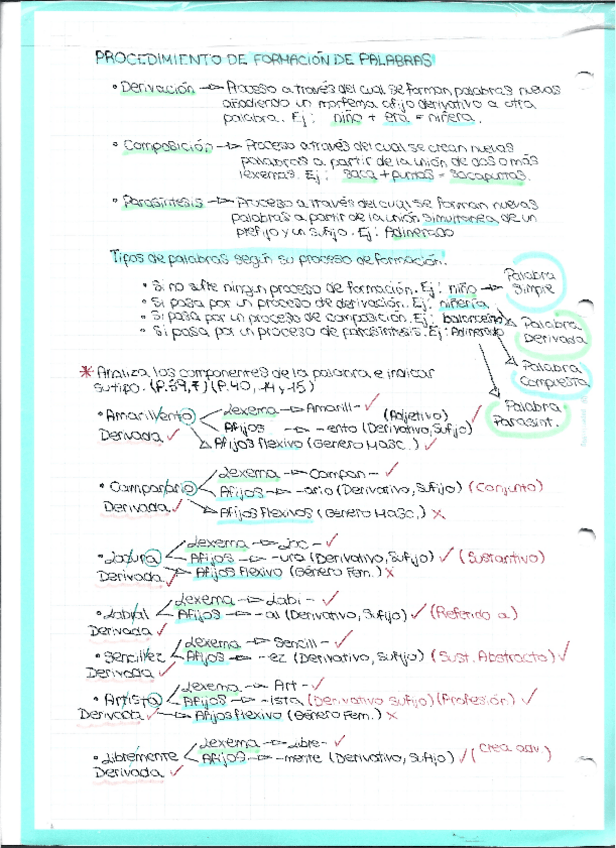 PROCEDIMIENTO DE FORMACIÓN DE PALABRAS
• Derivación → Proceso a través del cual se forman palabras nuevas
añadiendo un morfema afijo derivativo a otra
palabra. Ej: niño + ería = niñería.
• Composición → Proceso a través del cual se crean nuevas
palabras a partir de la unión de dos o más
lexemas. Ej: saca + puntas = sacapuntas.
• Parasíntesis → Proceso a través del cual se forman nuevas
palabras a partir de la unión simultanea de un
prefijo y un sufijo. Ej: Adinerado
Tipos de palabras según su proceso de formación.
• Si no sufre ningun proceso de formación. Ej: niño → Palabra Simple
• Si pasa por un proceso de derivación. Ej: niñería
Palabra Derivada
• Si pasa por un proceso de composición. Ej: baloncesto
Palabra Compuesta
• Si pasa por un proceso de parasíntesis. Ej: Adinerado
Palabra Parasint.
* Analiza los componentes de la palabra e indicar
su tipo.
• Amarillento Lexema → Amarill- ✓
Afijos → -ento (Derivativo, Sufijo) ✓ (Adjetivo)
Derivada ✓ Afijos flexivo (Genero Masc.) ✓
• Campanario Lexema → Campan- ✓
Afijos → -ario (Derivativo, Sufijo) (Conjunto)
Derivada ✓ Afijos flexivos (Género Masc.) ×
Lexema → Loc- ✓
• Locura Afijos → -ura (Derivativo, Sufijo) ✓ (Sustantivo)
Derivada ✓ Afijos flexivo (Género Fem.) ×
Lexema → Labi- ✓
• Labial Afijos → -al (Derivativo, Sufijo) ✓ (Referido a)
Derivada ✓
Lexema → Sencill- ✓
• Sencillez Afijos → -ez (Derivativo, Sufijo) (Sust. Abstracto) ✓
Derivada ✓
Lexema → Art- ✓
• Artista Afijos → -ista (Derivativo Sufijo) (Profesión) ✓
Derivada ✓ Afijos flexivo (Género Fem.) ×
Lexema → Libre- ✓
• Libremente Afijos → -mente (Derivativo, Sufijo) ✓ (Crea adv.)
Derivada ✓